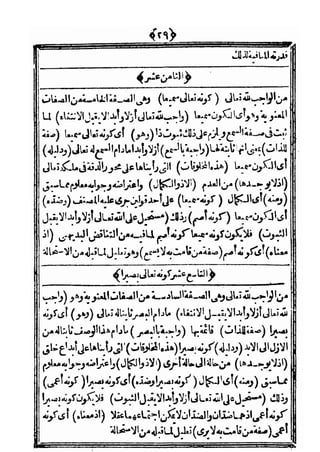 ﴿٢٩﴾
قدرته المنافية لذلك
﴿الثامن عشر﴾
من الواجب لله تعالى (كونه تعالى سميعا) وهى الصفة الخامسة من الصفات
المعنوية (وهو) أى الكون سميعا (واجب لله تعالى أزلا وأبدا لا يقبل الانتفاء) لما
ثبت فى صفة السمع ويلزم على ذلك ثبوت ذا (وهو) أى كونه تعالى سميعا (صفة
للذات) بمعنى انها ثابتة لها (واجبة بالسمع) أزلا وأبدا مادام السمع له تعالى (ودليله)
أى الكون سميعا (هذه المخلوقات) التى رأيناها على محور الدقة فى ملكة تعالى
(اذ لا يوجدها) من العدم (الا ذو الكمال) واعتراضه وجوابه معلوم مما سبق
(ومنه) أى الكمال (كونه سميعا) على أحد قولين جرى عليه المصنف (وضده)
أى الكون سميعا (كونه أصم) وذلك (مستحيل على الله تعالى أزلا وأبدا لا يقبل
الثبوت) فلا يكون كونه سميعا كونه أصم لما فيه من التناقض البديهى (اذ
معناه) أى كونه أصم (صفة من قامت به لا يسمع) وهو تعليل لما قبله من الاستحالة
﴿التاسع عشر كونه تعالى بصيرا﴾
من الواجب لله تعالى وهى الصفة السادسة من الصفات المعنوية وهو (واجب
لله تعالى أزلا وأبدا لا يقبل الانتفاء) مادام البصر ثابتا له تعالى (وهو) أى كونه
بصيرا (صفة للذات) قائمة بها (واجبة بالبصر) مادام هذا الوصف ثابتا له من
الازل الى الابد (ودليله) كونه بصيرا (هذه المخلوقات) التى رأيناها على أبداع خلق
(اذ لا يوجدها) من حالة الى حالة أخرى (الا ذو الكمال) واعتراضه وجوابه معلوم
مما سبق (ومنه) أى الكمال (كونه بصيرا وضده) أى كونه بصيرا (كونه أعمى)
وذلك (مستحيل على الله تعالى أزلا وأبدا لا يقبل الثبوت) فلا يكون كونه بصيرا
كونه أعمى اذ هما ضدان والضدان لا يمكن اجتماعهما عقلا (اذ معناه) أى كونه
أعمى (صفة من قامت به لا يرى) تعليل لما قبله من الاستحالة